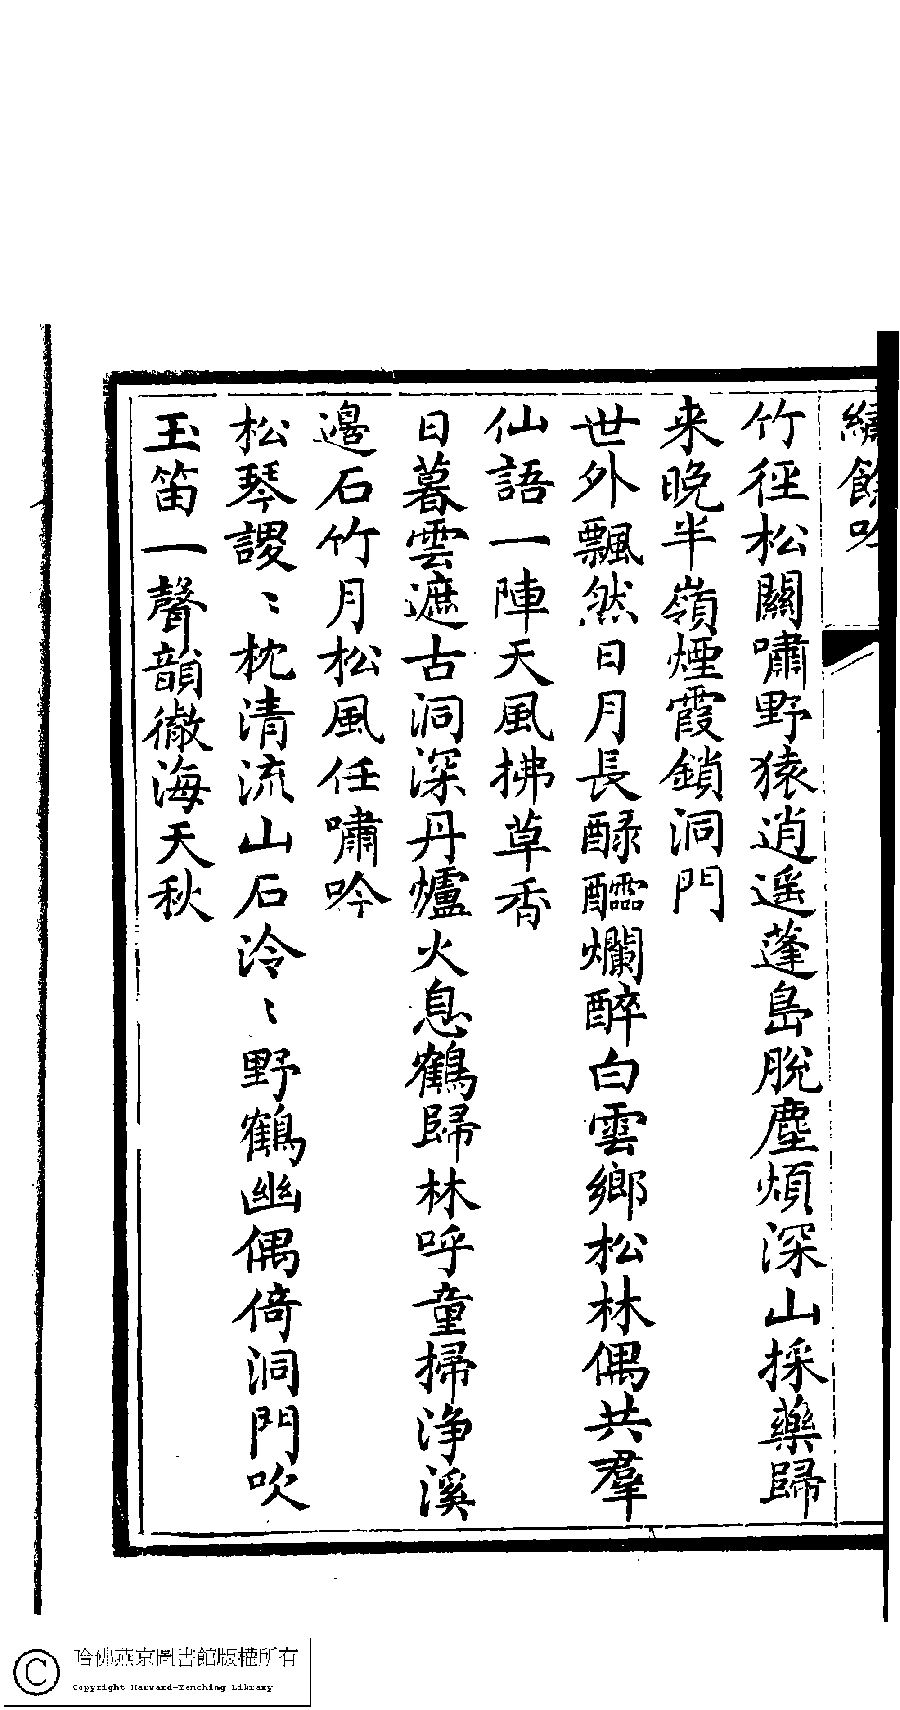 續餘吟
竹徑松關嘯野猿逍遥蓬島脫塵煩深山採藥歸
来晚半嶺煙霞鎖洞門
世外飄然日月長醁醽爛醉白雲鄉松林偶共羣
仙語一陣天風拂草香
日暮雲遮古洞深丹爐火息鶴歸林呼童掃淨溪
邊石竹月松風任嘯吟
松琴謖〻枕清流山石泠〻野鶴幽偶倚洞門吹
玉笛一聲韻徹海天秋
哈佛燕京圖書館版權所有
Copyright Harvard-Yenching Library